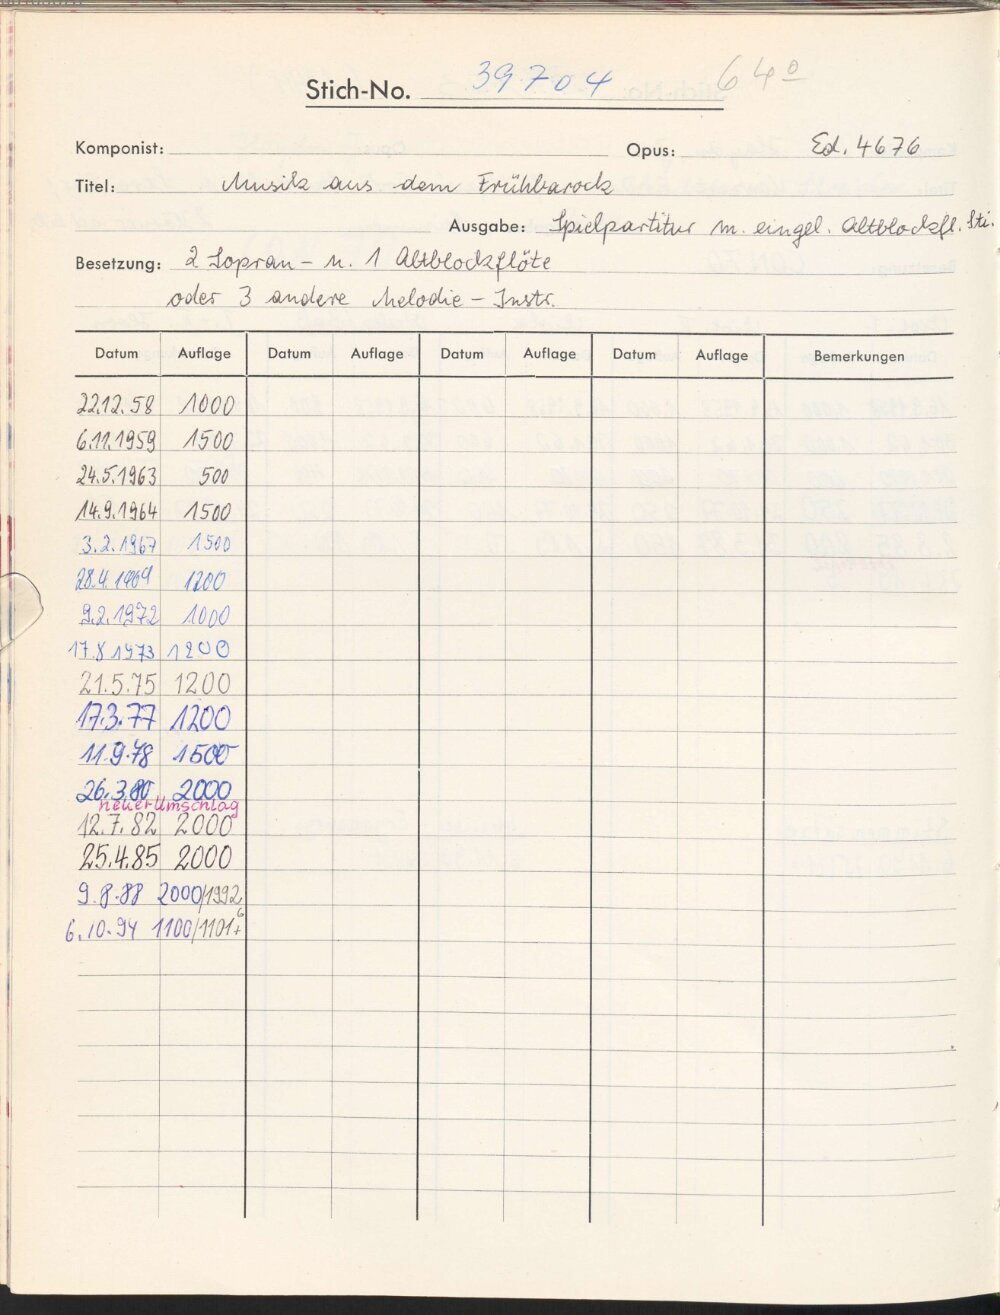 Stich-No. 39704 640
Komponist: Opus: Ed. 4676
Titel: Musik aus dem Frühbarock
Ausgabe: Spielpartitur m. eingel. Altblockfl. Sti.
Besetzung: 2 Sopran- u. 1 Altblockflöte
oder 3 andere Melodie-Instr.
Datum Auflage Datum Auflage Datum Auflage Datum Auflage Bemerkungen
22.12.58 1000
6.11.1959 1500
24.5.1963 500
14.9.1964 1500
3.2.1967 1500
28.4.1969 1200
9.2.1972 1000
17.8.1973 1200
21.5.75 1200
17.3.77 1200
11.9.78 1500
26.3.80 2000
neuer Umschlag
12.7.82 2000
25.4.85 2000
9.8.88 2000/1992
6.10.94 1100/1101+6